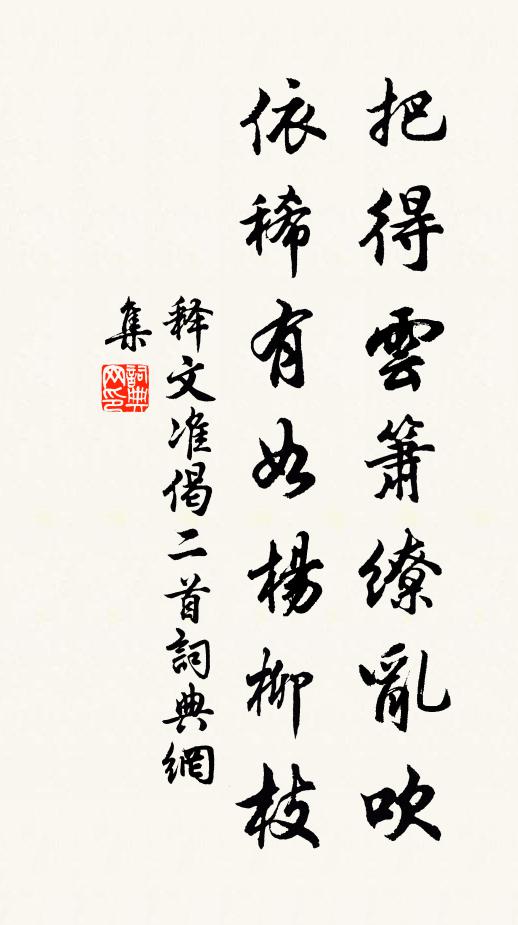 把得雲簫繚亂吹
依稀有如楊柳枝
释文准偈二首詞典網
集
詞典网印